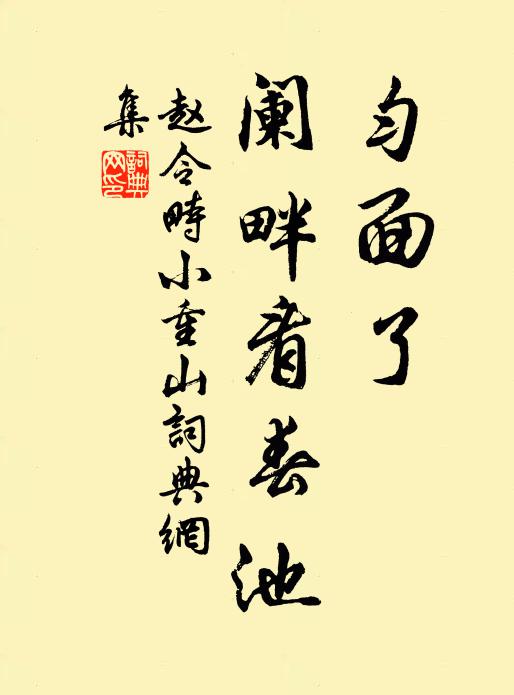 匀面了
阑畔看春池
赵令畤小重山词典網
集
詞典网印